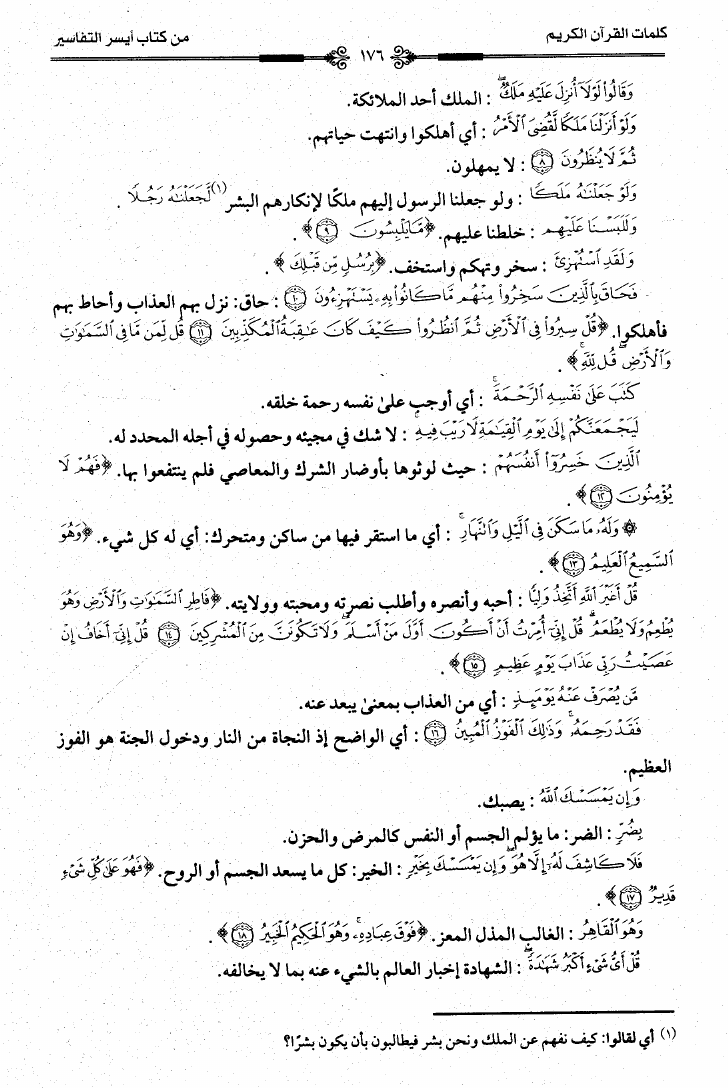 كلمات القرآن الكريم
١٧٦
من كتاب أيسر التفاسير
وَقَالُوا۟ لَوْلَآ أُنزِلَ عَلَيْهِ مَلَكٌ ۖ : الملك أحد الملائكة.
وَلَوْ أَنزَلْنَا مَلَكًا لَّقُضِىَ ٱلْأَمْرُ : أي أهلكوا وانتهت حياتهم.
ثُمَّ لَا يُنظَرُونَ ٨ : لا يمهلون.
وَلَوْ جَعَلْنَٰهُ مَلَكًا : ولو جعلنا الرسول إليهم ملكًا لإنكارهم البشر(١) لَّجَعَلْنَٰهُ رَجُلًا .
وَلَلَبَسْنَا عَلَيْهِم : خلطنا عليهم. ﴿مَّا يَلْبِسُونَ ٩﴾.
وَلَقَدِ ٱسْتُهْزِئَ : سخر وتهكم واستخف. ﴿بِرُسُلٍ مِّن قَبْلِكَ﴾.
فَحَاقَ بِٱلَّذِينَ سَخِرُوا۟ مِنْهُم مَّا كَانُوا۟ بِهِۦ يَسْتَهْزِءُونَ ١٠ : حاق: نزل بهم العذاب وأحاط بهم
فأهلكوا. ﴿قُلْ سِيرُوا۟ فِى ٱلْأَرْضِ ثُمَّ ٱنظُرُوا۟ كَيْفَ كَانَ عَٰقِبَةُ ٱلْمُكَذِّبِينَ ١١ قُل لِّمَن مَّا فِى ٱلسَّمَٰوَٰتِ
وَٱلْأَرْضِ ۖ قُل لِّلَّهِ ۚ﴾.
كَتَبَ عَلَىٰ نَفْسِهِ ٱلرَّحْمَةَ ۚ : أي أوجب علىٰ نفسه رحمة خلقه.
لَيَجْمَعَنَّكُمْ إِلَىٰ يَوْمِ ٱلْقِيَٰمَةِ لَا رَيْبَ فِيهِ ۚ : لا شك في مجيئه وحصوله في أجله المحدد له.
ٱلَّذِينَ خَسِرُوٓا۟ أَنفُسَهُمْ : حيث لوثوها بأوضار الشرك والمعاصي فلم ينتفعوا بها. ﴿فَهُمْ لَا
يُؤْمِنُونَ ١٢﴾.
۞ وَلَهُۥ مَا سَكَنَ فِى ٱلَّيْلِ وَٱلنَّهَارِ ۚ : أي ما استقر فيها من ساكن ومتحرك: أي له كل شيء. ﴿وَهُوَ
ٱلسَّمِيعُ ٱلْعَلِيمُ ١٣﴾.
قُلْ أَغَيْرَ ٱللَّهِ أَتَّخِذُ وَلِيًّا : أحبه وأنصره وأطلب نصرته ومحبته وولايته. ﴿فَاطِرِ ٱلسَّمَٰوَٰتِ وَٱلْأَرْضِ وَهُوَ
يُطْعِمُ وَلَا يُطْعَمُ ۗ قُلْ إِنِّىٓ أُمِرْتُ أَنْ أَكُونَ أَوَّلَ مَنْ أَسْلَمَ ۖ وَلَا تَكُونَنَّ مِنَ ٱلْمُشْرِكِينَ ١٤ قُلْ إِنِّىٓ أَخَافُ إِنْ
عَصَيْتُ رَبِّى عَذَابَ يَوْمٍ عَظِيمٍ ١٥﴾.
مَّن يُصْرَفْ عَنْهُ يَوْمَئِذٍ : أي من العذاب بمعنىٰ يبعد عنه.
فَقَدْ رَحِمَهُۥ ۚ وَذَٰلِكَ ٱلْفَوْزُ ٱلْمُبِينُ ١٦ : أي الواضح إذ النجاة من النار ودخول الجنة هو الفوز
العظيم.
وَإِن يَمْسَسْكَ ٱللَّهُ : يصبك.
بِضُرٍّ : الضر: ما يؤلم الجسم أو النفس كالمرض والحزن.
فَلَا كَاشِفَ لَهُۥٓ إِلَّا هُوَ ۖ وَإِن يَمْسَسْكَ بِخَيْرٍ : الخير: كل ما يسعد الجسم أو الروح. ﴿فَهُوَ عَلَىٰ كُلِّ شَىْءٍ
قَدِيرٌ ١٧﴾.
وَهُوَ ٱلْقَاهِرُ : الغالب المذل المعز. ﴿فَوْقَ عِبَادِهِۦ ۚ وَهُوَ ٱلْحَكِيمُ ٱلْخَبِيرُ ١٨﴾.
قُلْ أَىُّ شَىْءٍ أَكْبَرُ شَهَٰدَةً ۖ : الشهادة إخبار العالم بالشيء عنه بما لا يخالفه.
(١) أي لقالوا: كيف نفهم عن الملك ونحن بشر فيطالبون بأن يكون بشرًا؟